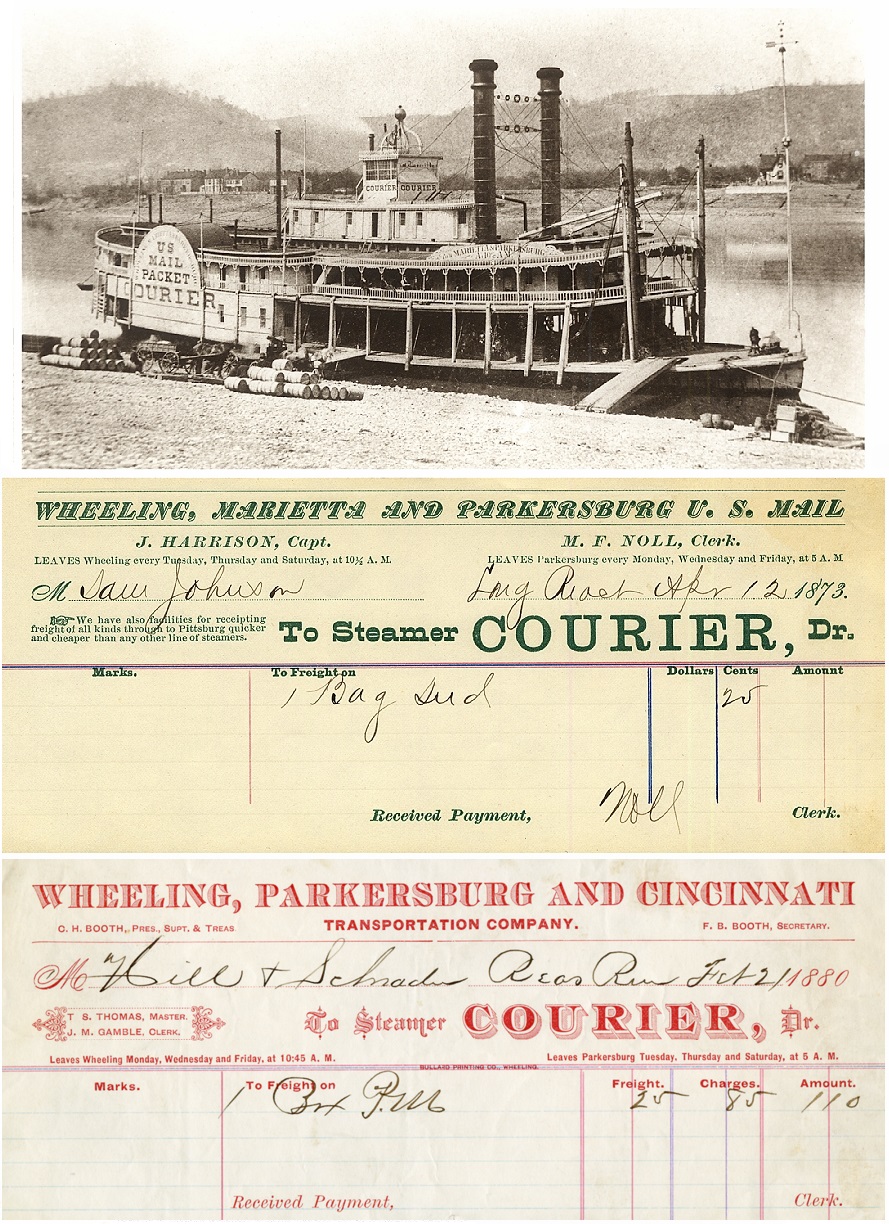 COURIER COURIER
MARIETTA & PARKERSBURG
US
MAIL
PACKET
COURIER
WHEELING, MARIETTA AND PARKERSBURG U. S. MAIL
J. HARRISON, Capt. M. F. NOLL, Clerk.
LEAVES Wheeling every Tuesday, Thursday and Saturday, at 10½ A. M. LEAVES Parkersburg every Monday, Wednesday and Friday, at 5 A. M
M Sam Johnson Long Reach Apr 12 1873.
We have also facilities for receipting
freight of all kinds through to Pittsburg quicker
and cheaper than any other line of steamers.
To Steamer COURIER, Dr.
Marks. To Freight on Dollars Cents Amount
1 Bag 25
Received Payment, Noll Clerk.
WHEELING, PARKERSBURG AND CINCINNATI
C. H. BOOTH, PRES., SUPT. & TREAS TRANSPORTATION COMPANY. F. B. BOOTH, SECRETARY.
M Hill & Schrader Feb 21 1880
T S. THOMAS, MASTER.
J. M. GAMBLE, CLERK.
To Steamer COURIER, Dr.
Leaves Wheeling Monday, Wednesday and Friday, at 10:45 A. M. Leaves Parkersburg Tuesday, Thursday and Saturday, at 5 A. M.
BULLARD PRINTING CO., WHEELING.
Marks. To Freight on Freight. Charges. Amount.
1 Box 25 85 110
Received Payment, Clerk.